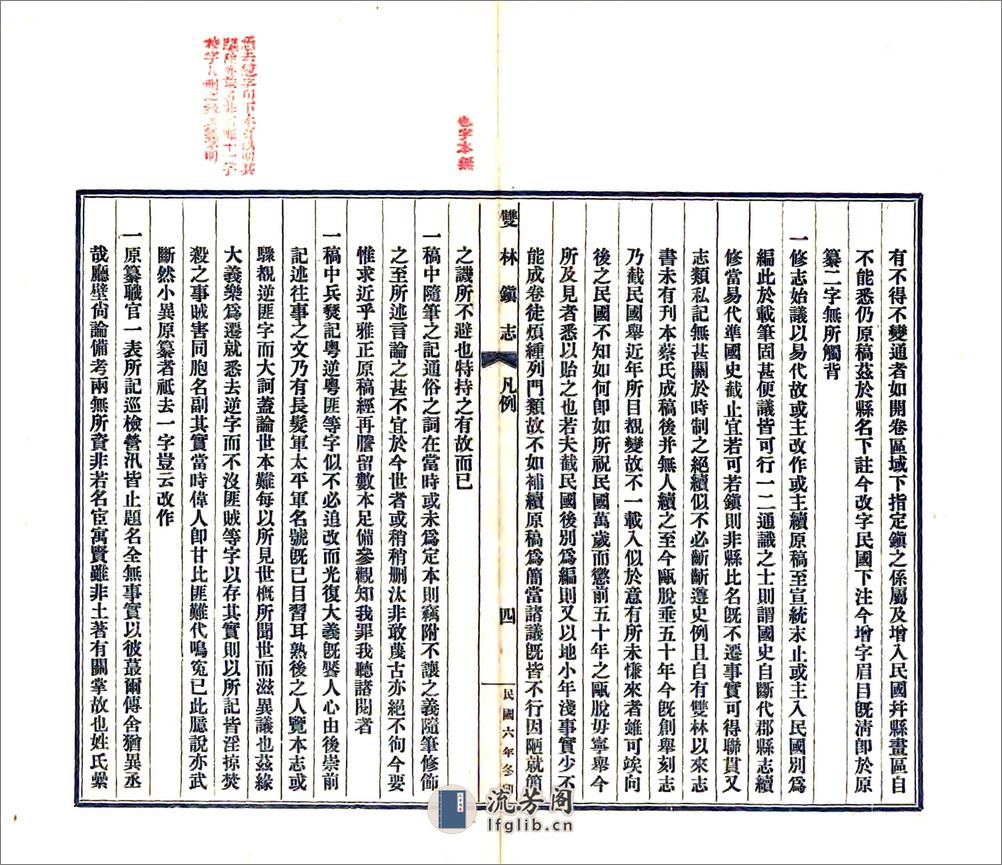 有不得不變通者如開卷區域下指定鎭之係屬及增入民國幷縣畫區自
不能悉仍原稿茲於縣名下註今改字民國下注今增字眉目旣淸卽於原
纂二字無所觸背
一修志始議以易代故或主改作或主續原稿至宣統末止或主入民國別爲
編此於載筆固甚便議皆可行一二通識之士則謂國史自斷代郡縣志續
修當易代準國史截止宜若可若鎭則非縣比名旣不遷事實可得聯貫又
志類私記無甚關於時制之絕續似不必齗齗遵史例且自有雙林以來志
書未有刊本蔡氏成稿後并無人續之至今甌脫垂五十年今旣創舉刻志
乃截民國舉近年所目覩變故不一載入似於意有所未慊來者雖可竢向
後之民國不知如何卽如所祝民國萬歲而懲前五十年之甌脫毋寧舉今
所及見者悉以貽之也若夫截民國後別爲編則又以地小年淺事實少不
能成卷徒煩緟列門類故不如補續原稿爲簡當諸議旣皆不行因陋就簡
雙林鎭志
凡例
四
民國六年冬
之譏所不避也特持之有故而已
一稿中隨筆之記通俗之詞在當時或未爲定本則竊附不讓之義隨筆修飾
之至所述言論之甚不宜於今世者或稍稍删汰非敢蔑古亦絕不徇今要
惟求近乎雅正原稿經再謄留數本足備參觀知我罪我聽諸閱者
一稿中兵燹記粵逆粵匪等字似不必追改而光復大義旣饜人心由後崇前
記述往事之文乃有長髮軍太平軍名號旣已目習耳熟後之人覽本志或
驟覩逆匪字而大訶蓋論世本難每以所見世槪所聞世而滋異議也茲緣
大義樂爲遷就悉去逆字而不沒匪賊等字以存其實則以所記皆淫掠焚
殺之事賊害同胞名副其實當時偉人卽甘比匪難代鳴冤已此臆說亦武
斷然小異原纂者祗去一字豈云改作
一原纂職官一表所記巡檢營汛皆止題名全無事實以彼蕞爾傳舍猶異丞
哉廳壁尙論備考兩無所資非若名宦寓賢雖非土著有關掌故也姓氏纍
也字本無
流芳阁
lfglib.cn